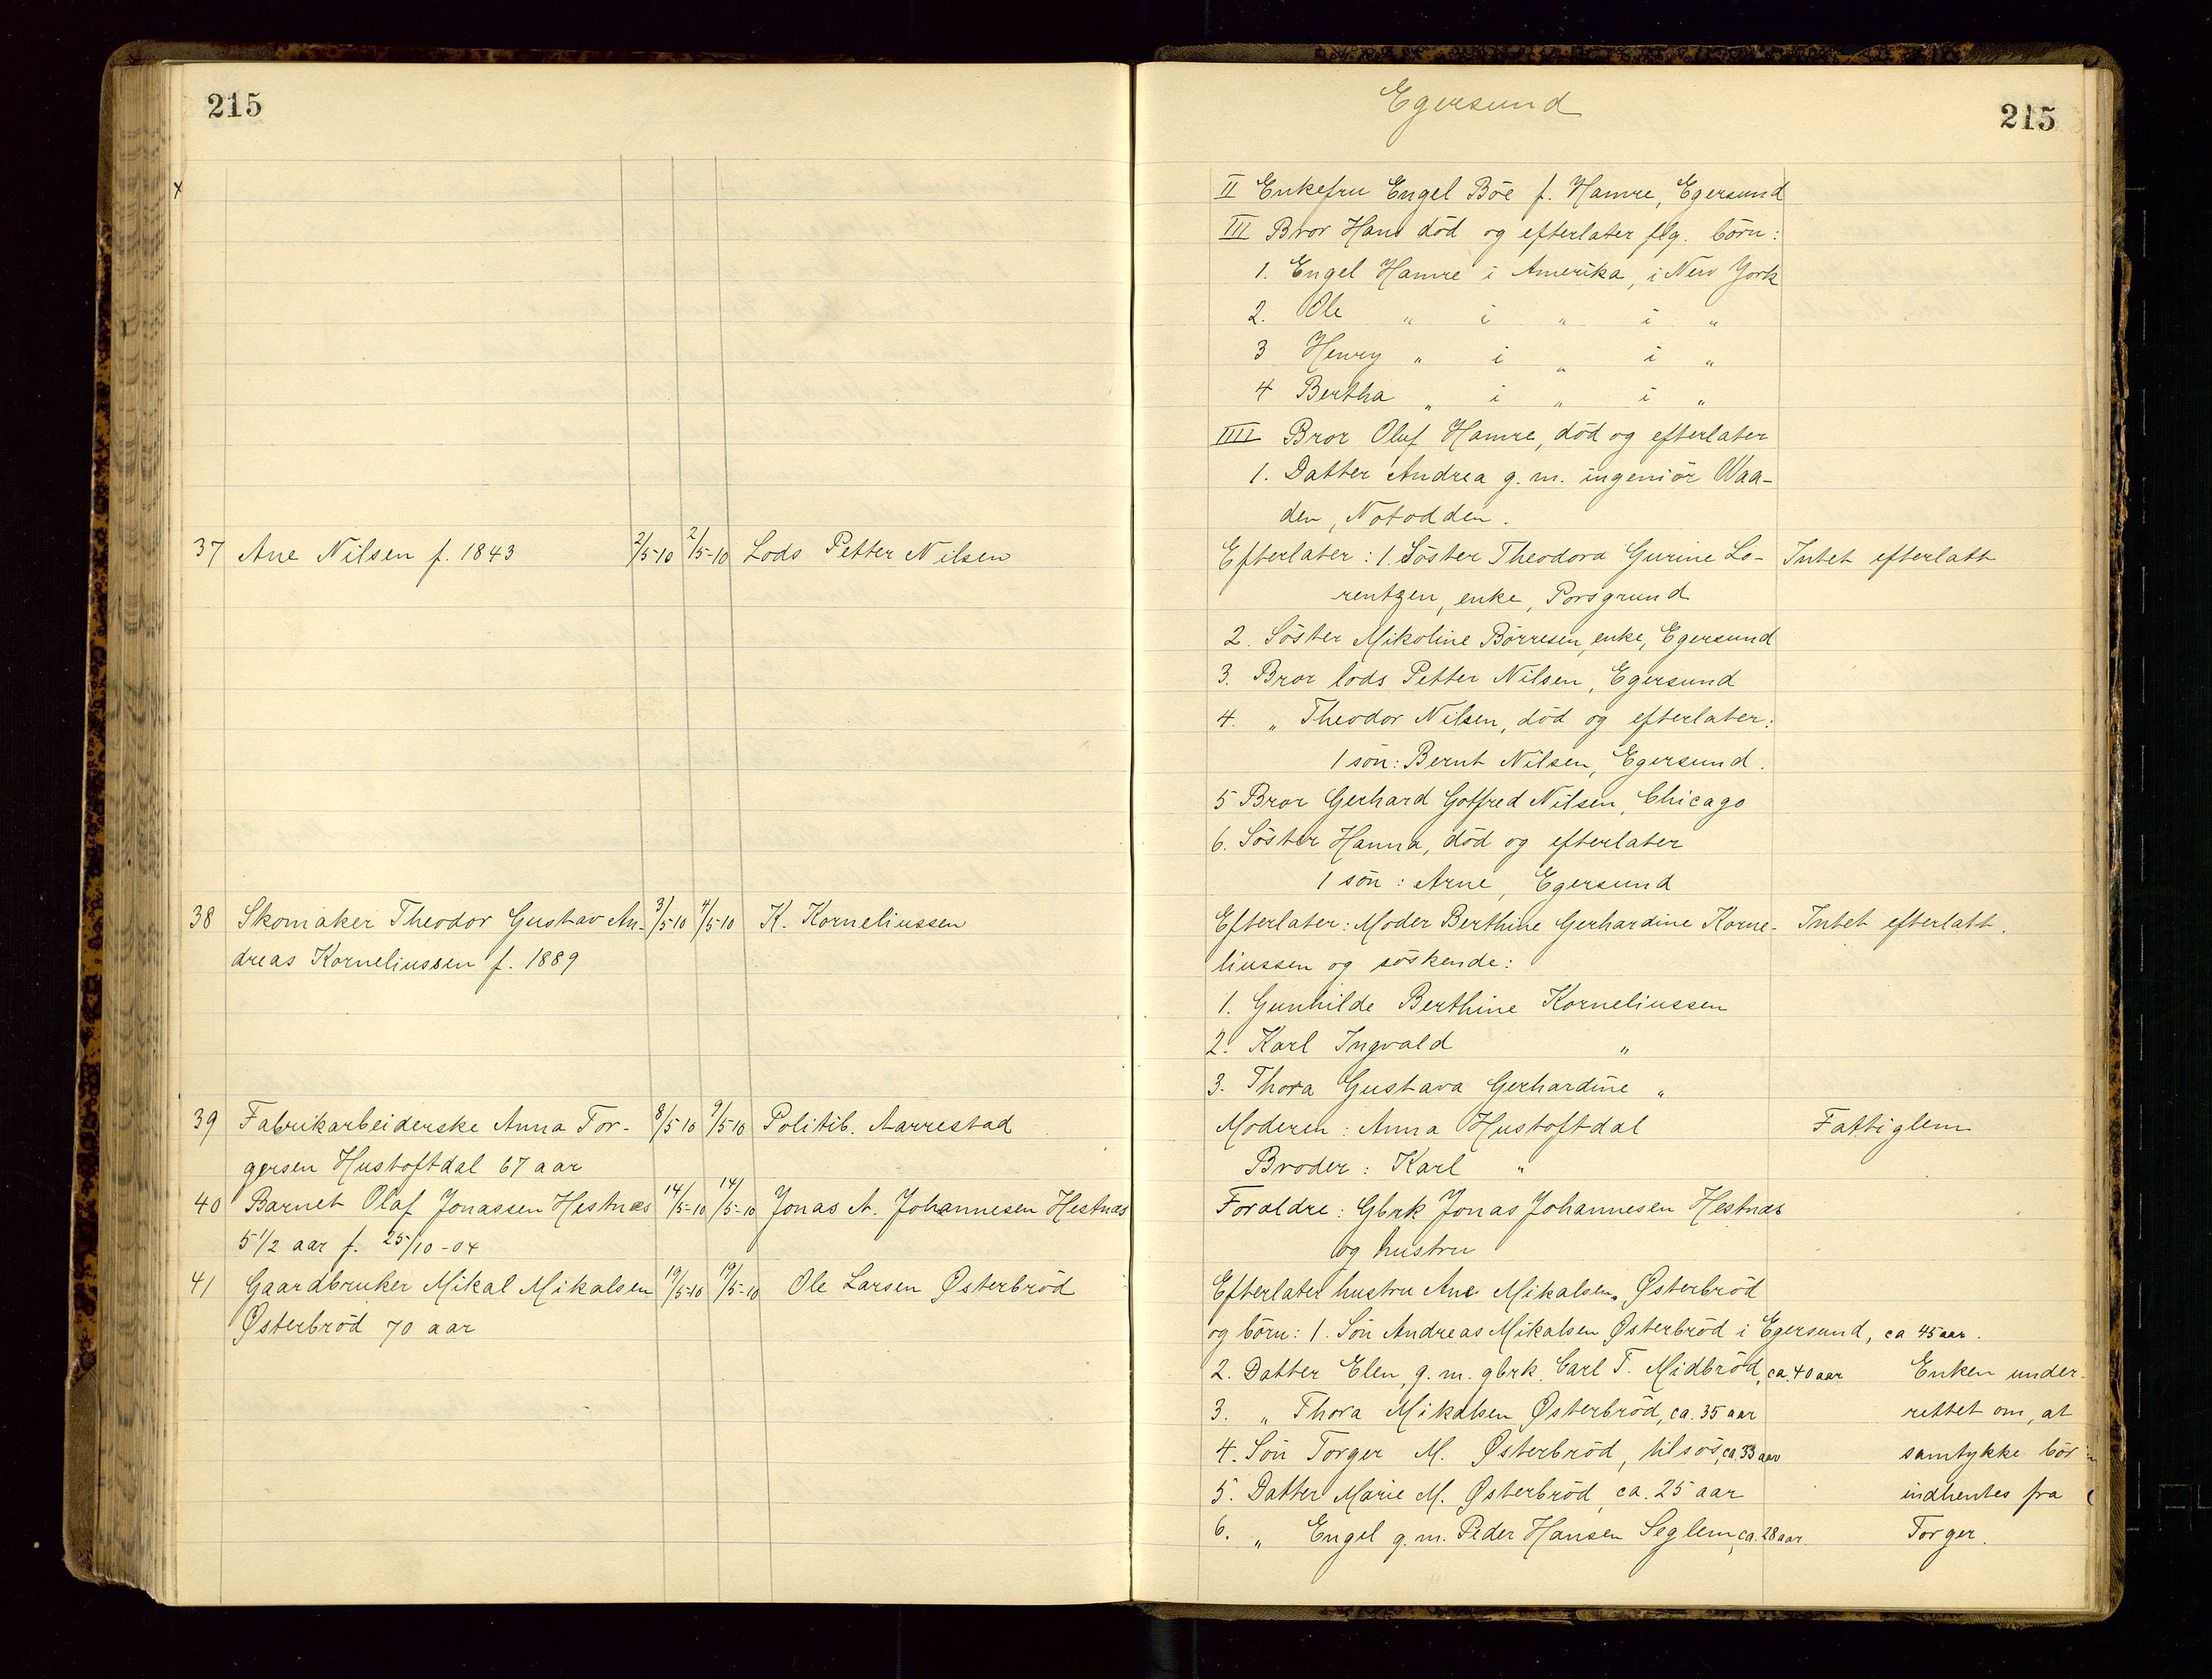 215
x
37 Ane Nilsen f. 1843 2/5-10 2/5-10 Lods Petter Nilsen
38 Skomaker Theodor Gustav An- 3/5 10 4/5 10 K. Korneliussen
dreas Korneliussen f. 1889
39 Fabrikarbeiderske Anna Tor- 8/5 10 9/5 10 Politib. Aarrestad
gersen Hustoftdal 67 aar
40 Barnet Olaf Jonassen Hestnes 14/5-10 14/5-10 Jonas A. Johannesen Hestnæs
5 1/2 aar f. 25/10-04
41 Gaardbruker Mikal Mikalsen 19/5-10 19/5-10 Ole Larsen Østerbröd
Østerbröd 70 aar
Egersund
215
II Enkefru Engel Böe f. Hamre, Egersund
III Bror Hans död og efterlater flg. börn:
1. Engel Hamre i Amerika, i New York
2. Ole " i " i "
3 Henry " i " i "
4 Bertha " i " i "
IIII Bror Oluf Hamre, död og efterlater
1. Datter Andrea g. m. ingeniör Waa-
den, Notodden.
Efterlater: 1. Söster Theodora Gurine Lo- Intet efterlatt
rentzen, enke, Porsgrund
2. Söster Mikoline Börresen, enke, Egersund
3. Bror lods Petter Nilsen, Egersund
4. " Theodor Nilsen, död og efterlater:
1 sön: Bernt Nilsen, Egersund.
5 Bror Gerhard Gotfred Nilsen, Chicago
6. Söster Hanna, död og efterlater
1 sön: Arne, Egersund
Efterlater: Moder Berthine Gerhardine Korne- Intet efterlatt.
liussen og söskende:
1. Gunhilde Berthine Korneliussen
2. Karl Ingvald "
3. Thora Gustava Gerhardine "
Moderen: Anna Hustoftdal Fattiglem
Broder: Karl "
Forældre: Gbrk Jonas Johannesen Hestnæs
og hustru
Efterlater hustru Ane Mikalsen Østerbröd
og börn: 1. Sön Andreas Mikalsen Østerbröd i Egersund, ca 45 aar.
2. Datter Elen, g. m. gbrk. Carl T. Midbröd, ca. 40 aar Enken under-
3. " Thora Mikalsen Østerbröd, ca. 35 aar rettet om, at
4. Sön Torger M. Østerbröd, tilsös, ca. 33 aar samtykke bör
5. Datter Marie M. Østerbröd, ca. 25 aar indhentes fra
6. " Engel g. m. Peder Hansen Seglem, ca. 28 aar. Torger.